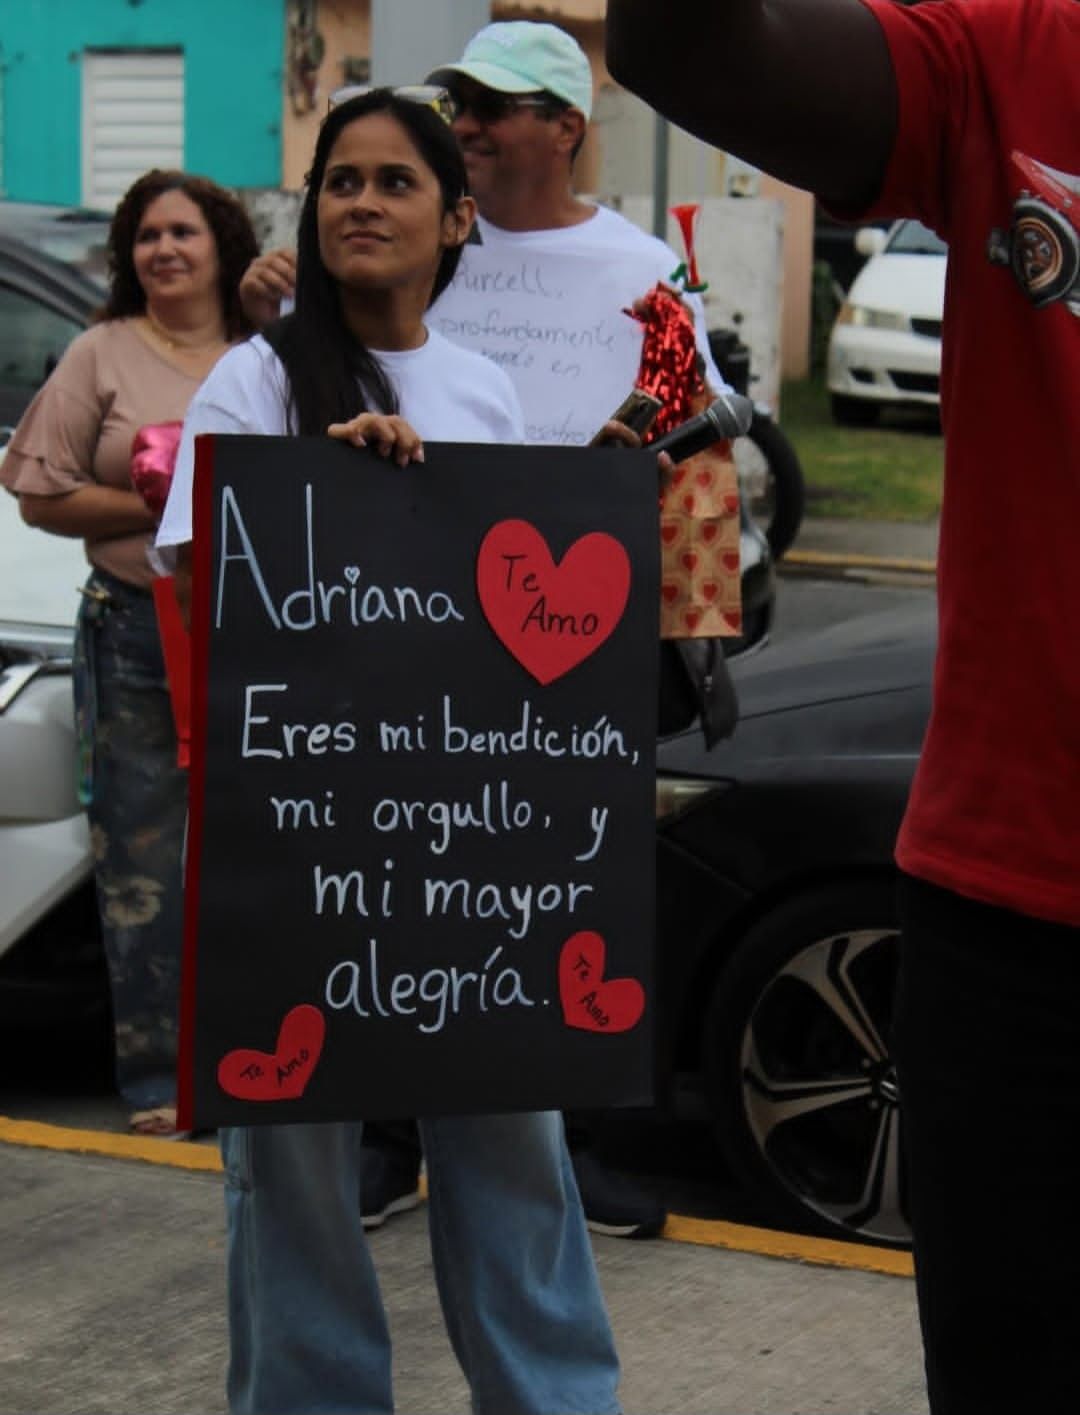 Purcell,
profundamente
en
Adriana
Te
Amo
Eres mi bendición,
mi orgullo, y
mi mayor
alegría.
Te
Amo
Te Amo